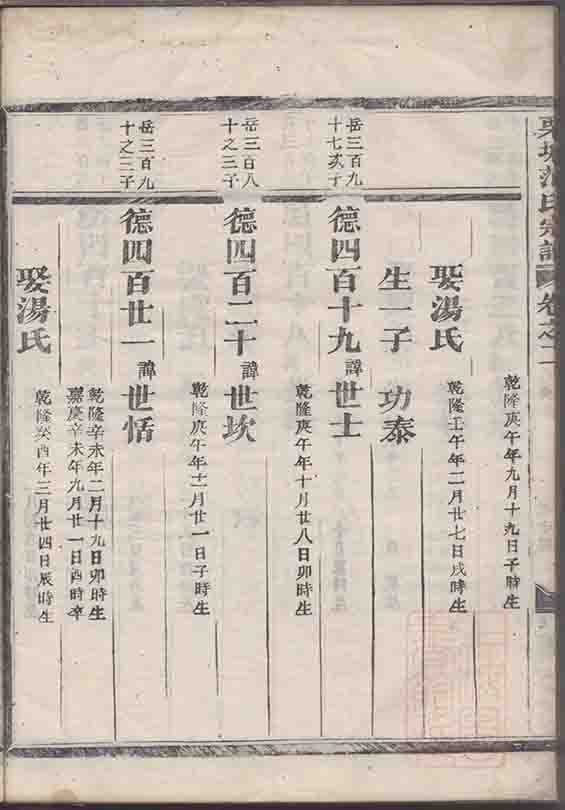 宗譜 卷之二
乾隆庚午年九月十九日子時生
娶湯氏
乾隆壬午年二月廿七日戌時生
生一子 功泰
岳三百九
十七次子
德四百十九 諱世士
乾隆庚午年十月廿八日卯時生
岳三百八
十之三子
德四百二十 諱世坎
乾隆庚午年十二月廿一日子時生
岳三百九
十之三子
德四百廿一 諱世恬
乾隆辛未年二月十九日卯時生
嘉慶辛未年九月廿一日酉時卒
娶湯氏
乾隆癸酉年三月廿四日辰時生